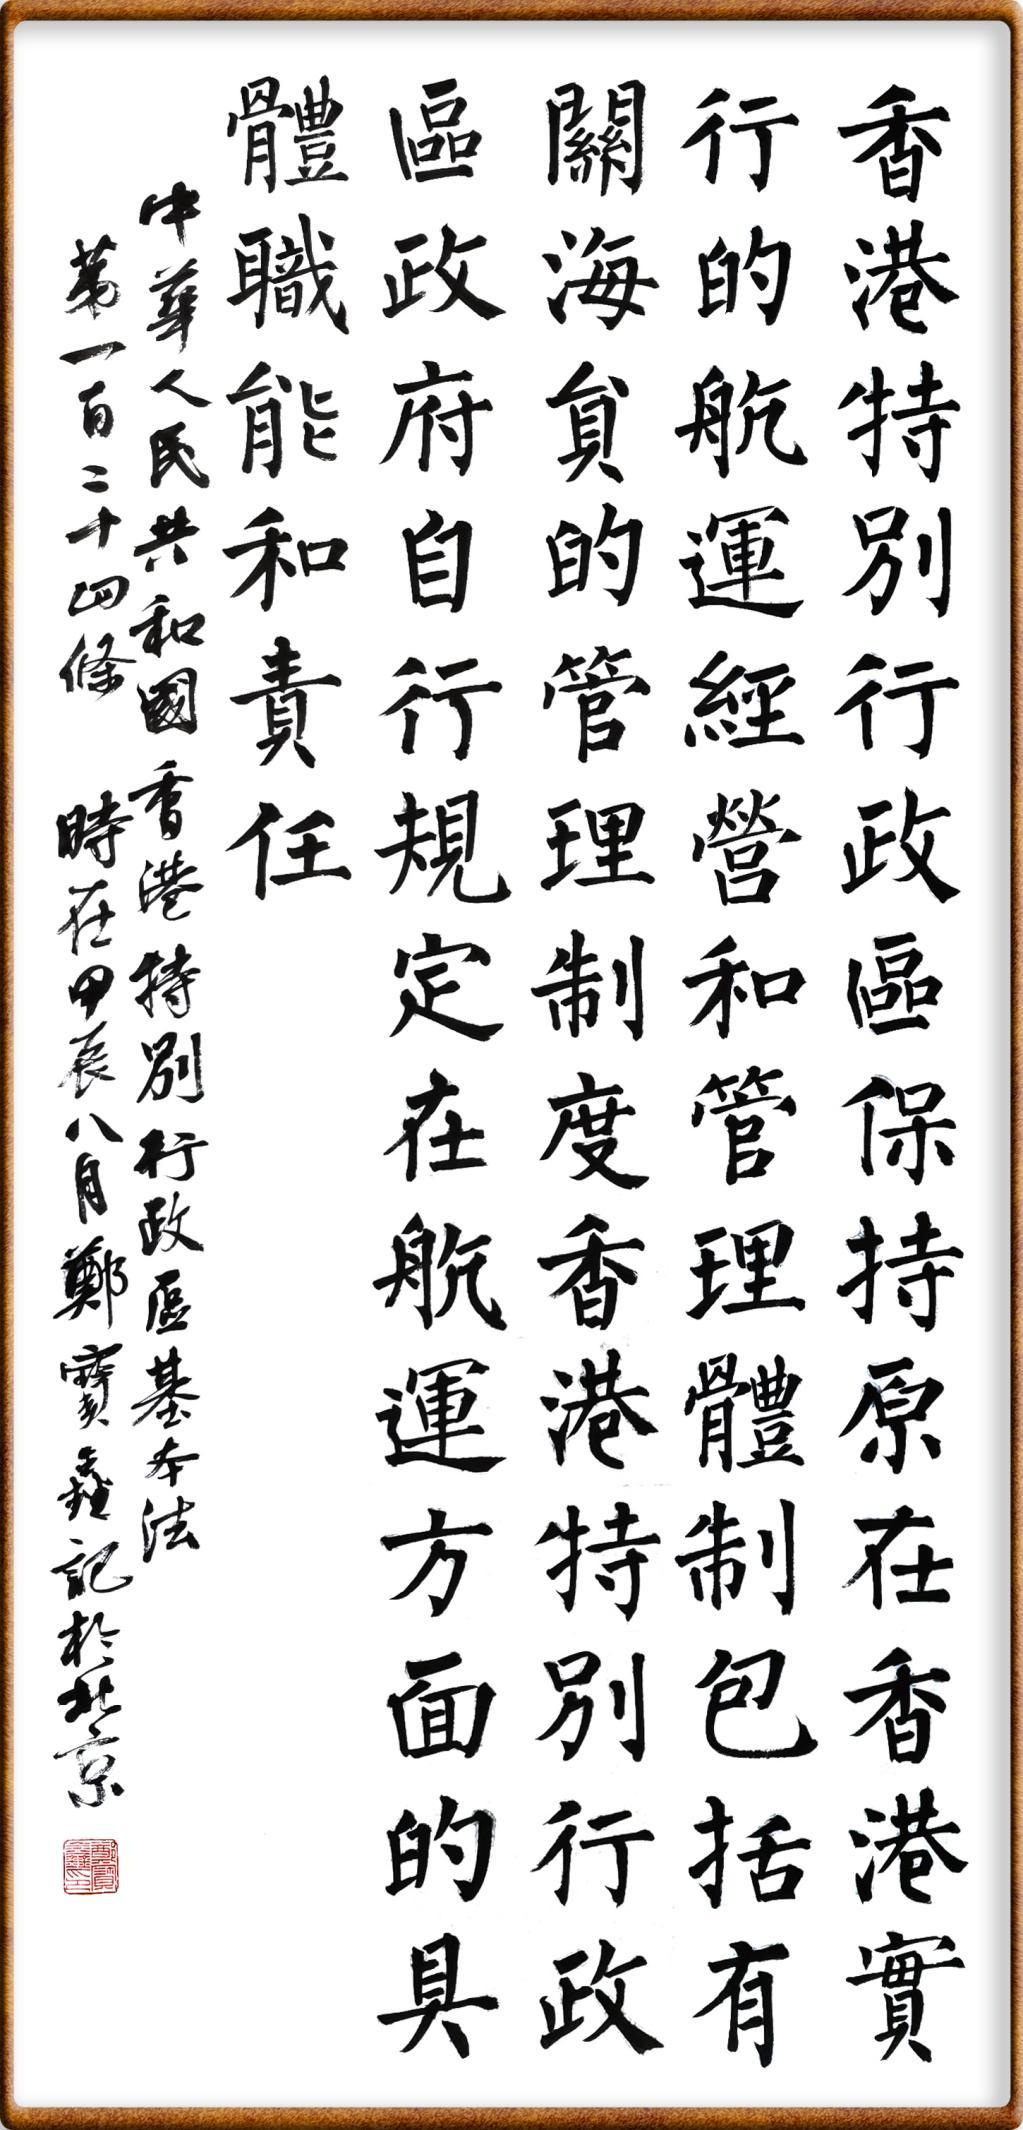 香港特別行政區保持原在香港實
行的航運經營和管理體制包括有
關海員的管理制度香港特別行政
區政府自行規定在航運方面的具
體職能和責任
中華人民共和國香港特別行政區基本法
第一百二十四條 時在甲辰八月鄭寶鑫記於北京